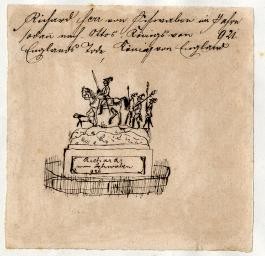 Richard Herr von Schwaben im Jahre
sodan nach Ottos Königs von 921.
Englands Tode, König von England
Richard
von Schwaben
921